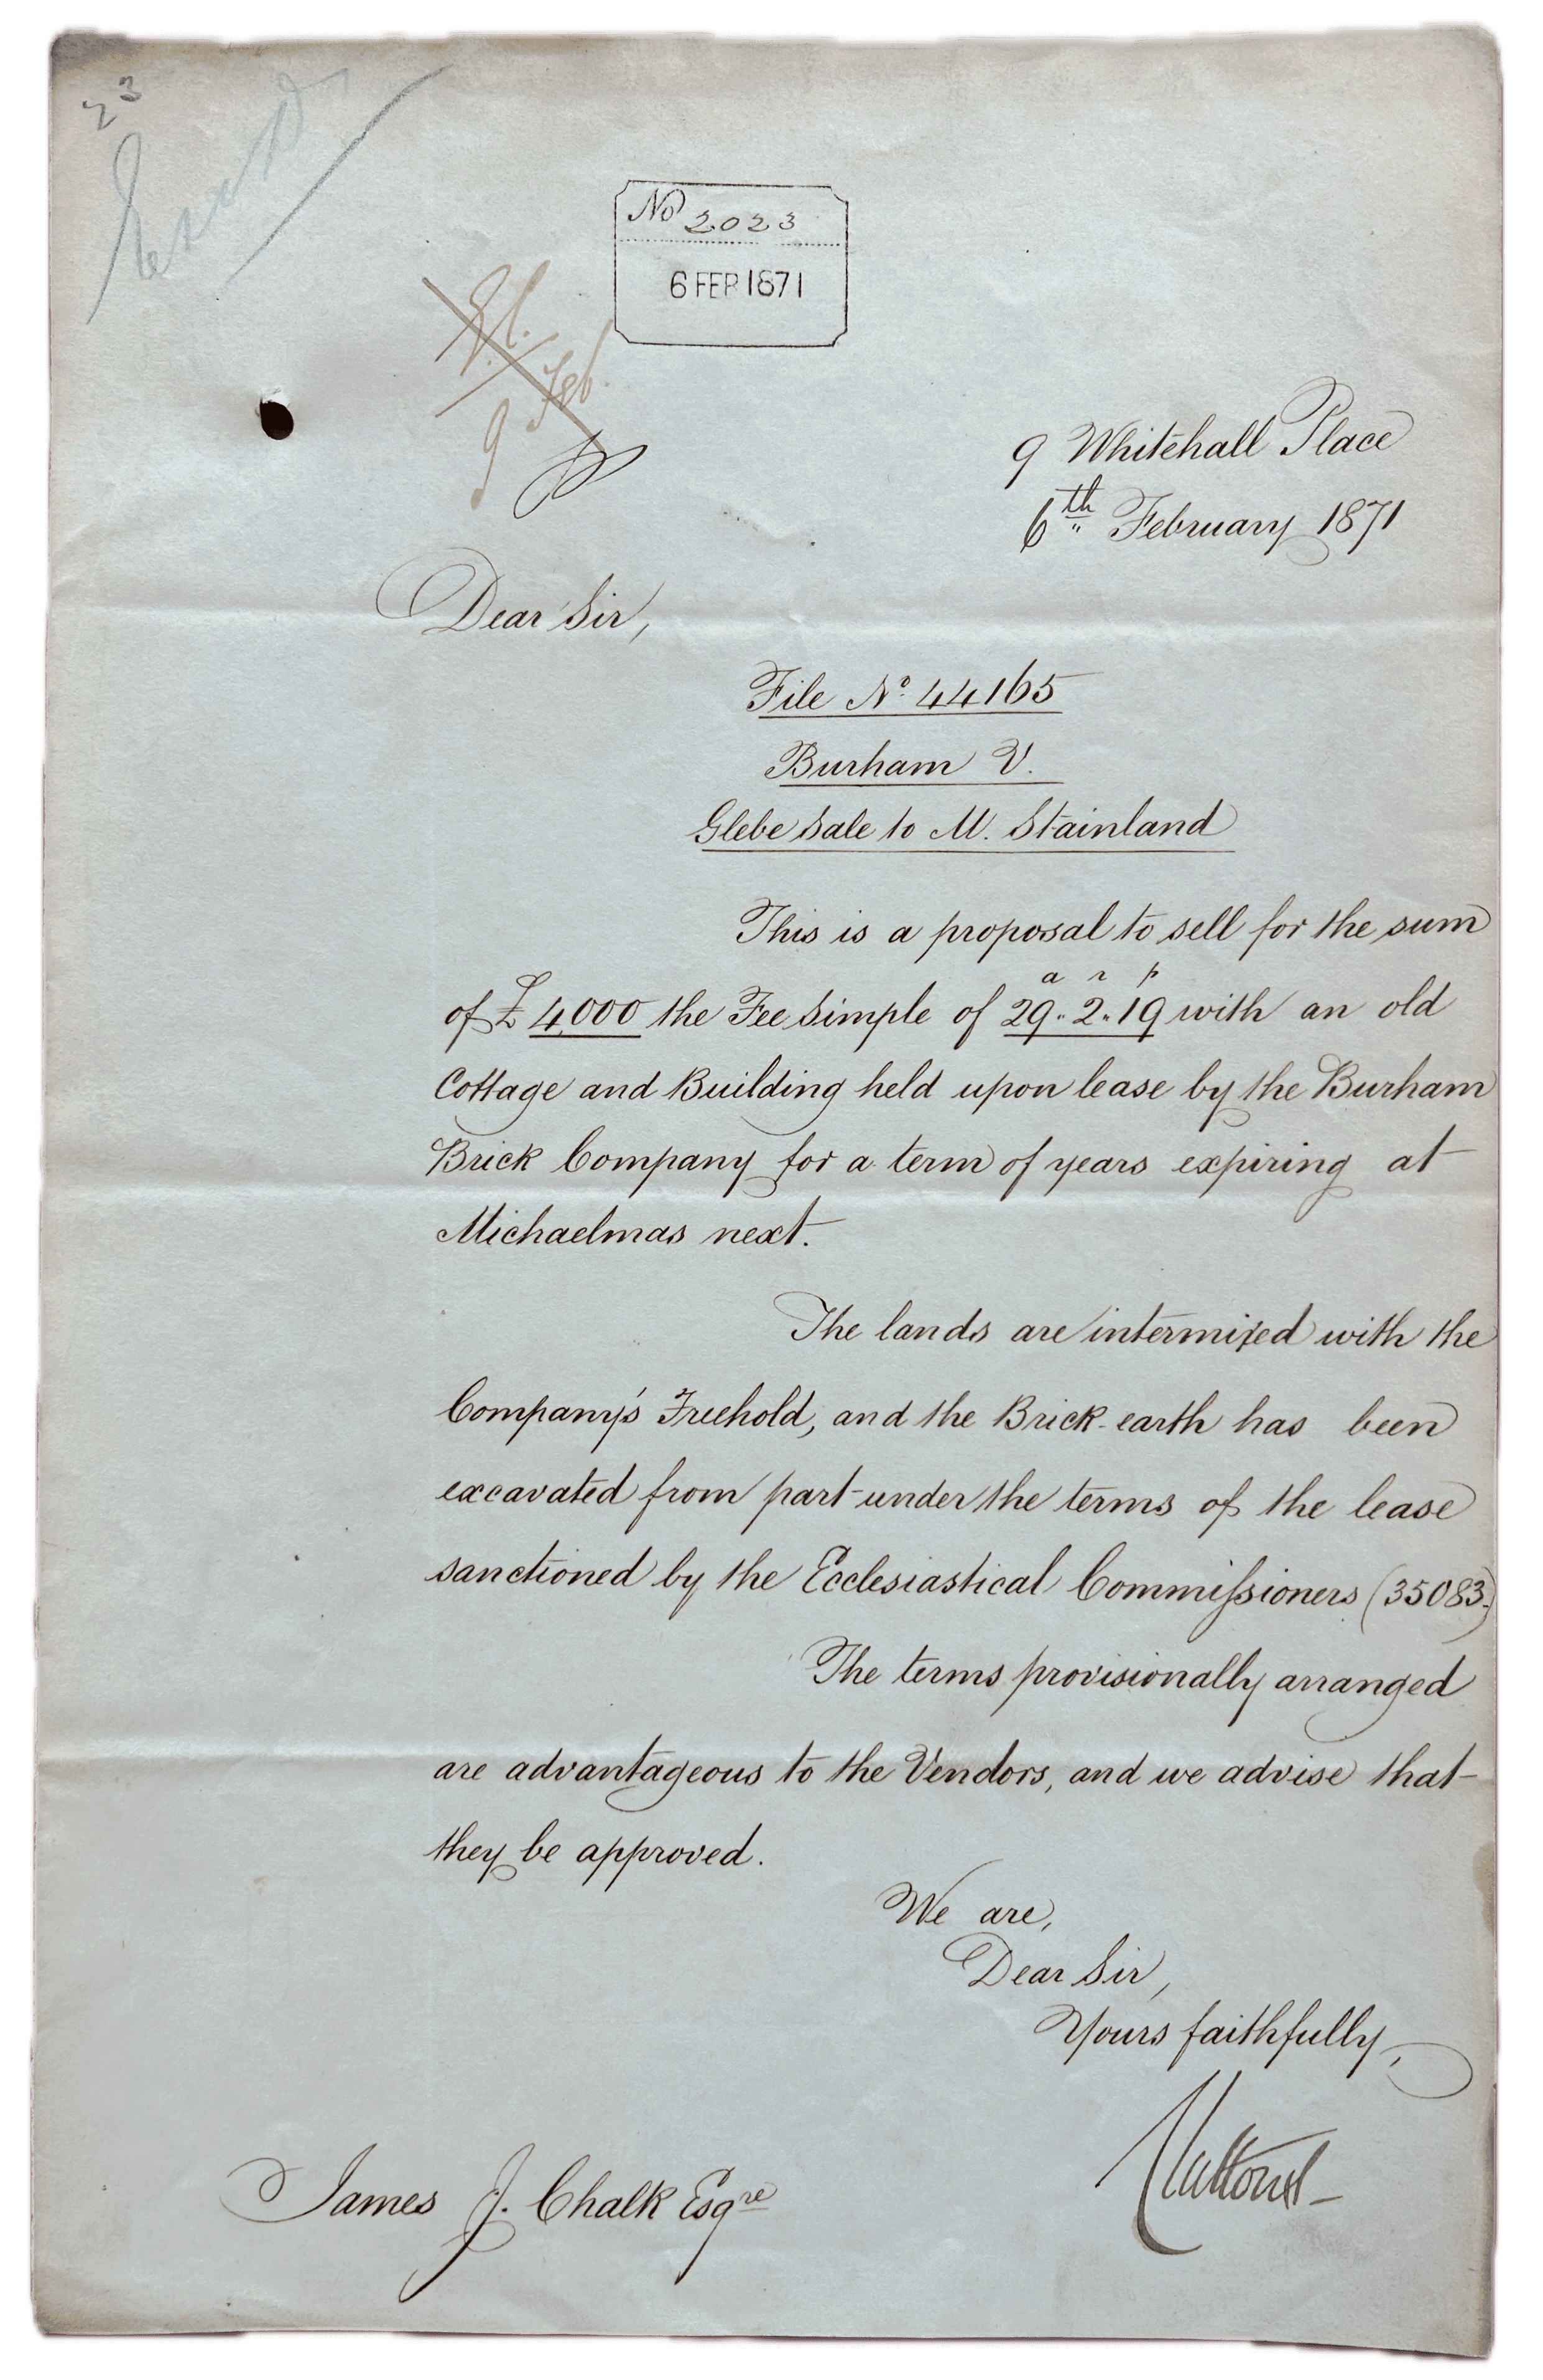 23
No 2023
6 FEB 1871
9 Feb.
9 Whitehall Place
6th February 1871
Dear Sir,
File No. 44165
Burham V.
Glebe Sale to M. Stainland
This is a proposal to sell for the sum
a r p
of £4,000 the Fee Simple of 29.. 2.. 19 with an old
Cottage and Building held upon lease by the Burham
Brick Company for a term of years expiring at
Michaelmas next.
The lands are intermixed with the
Company's Freehold, and the Brick-earth has been
excavated from part under the terms of the lease
sanctioned by the Ecclesiastical Commissioners (35083.)
The terms provisionally arranged
are advantageous to the Vendors, and we advise that
they be approved.
We are,
Dear Sir,
Yours faithfully,
Cluttons
James J. Chalk Esqre